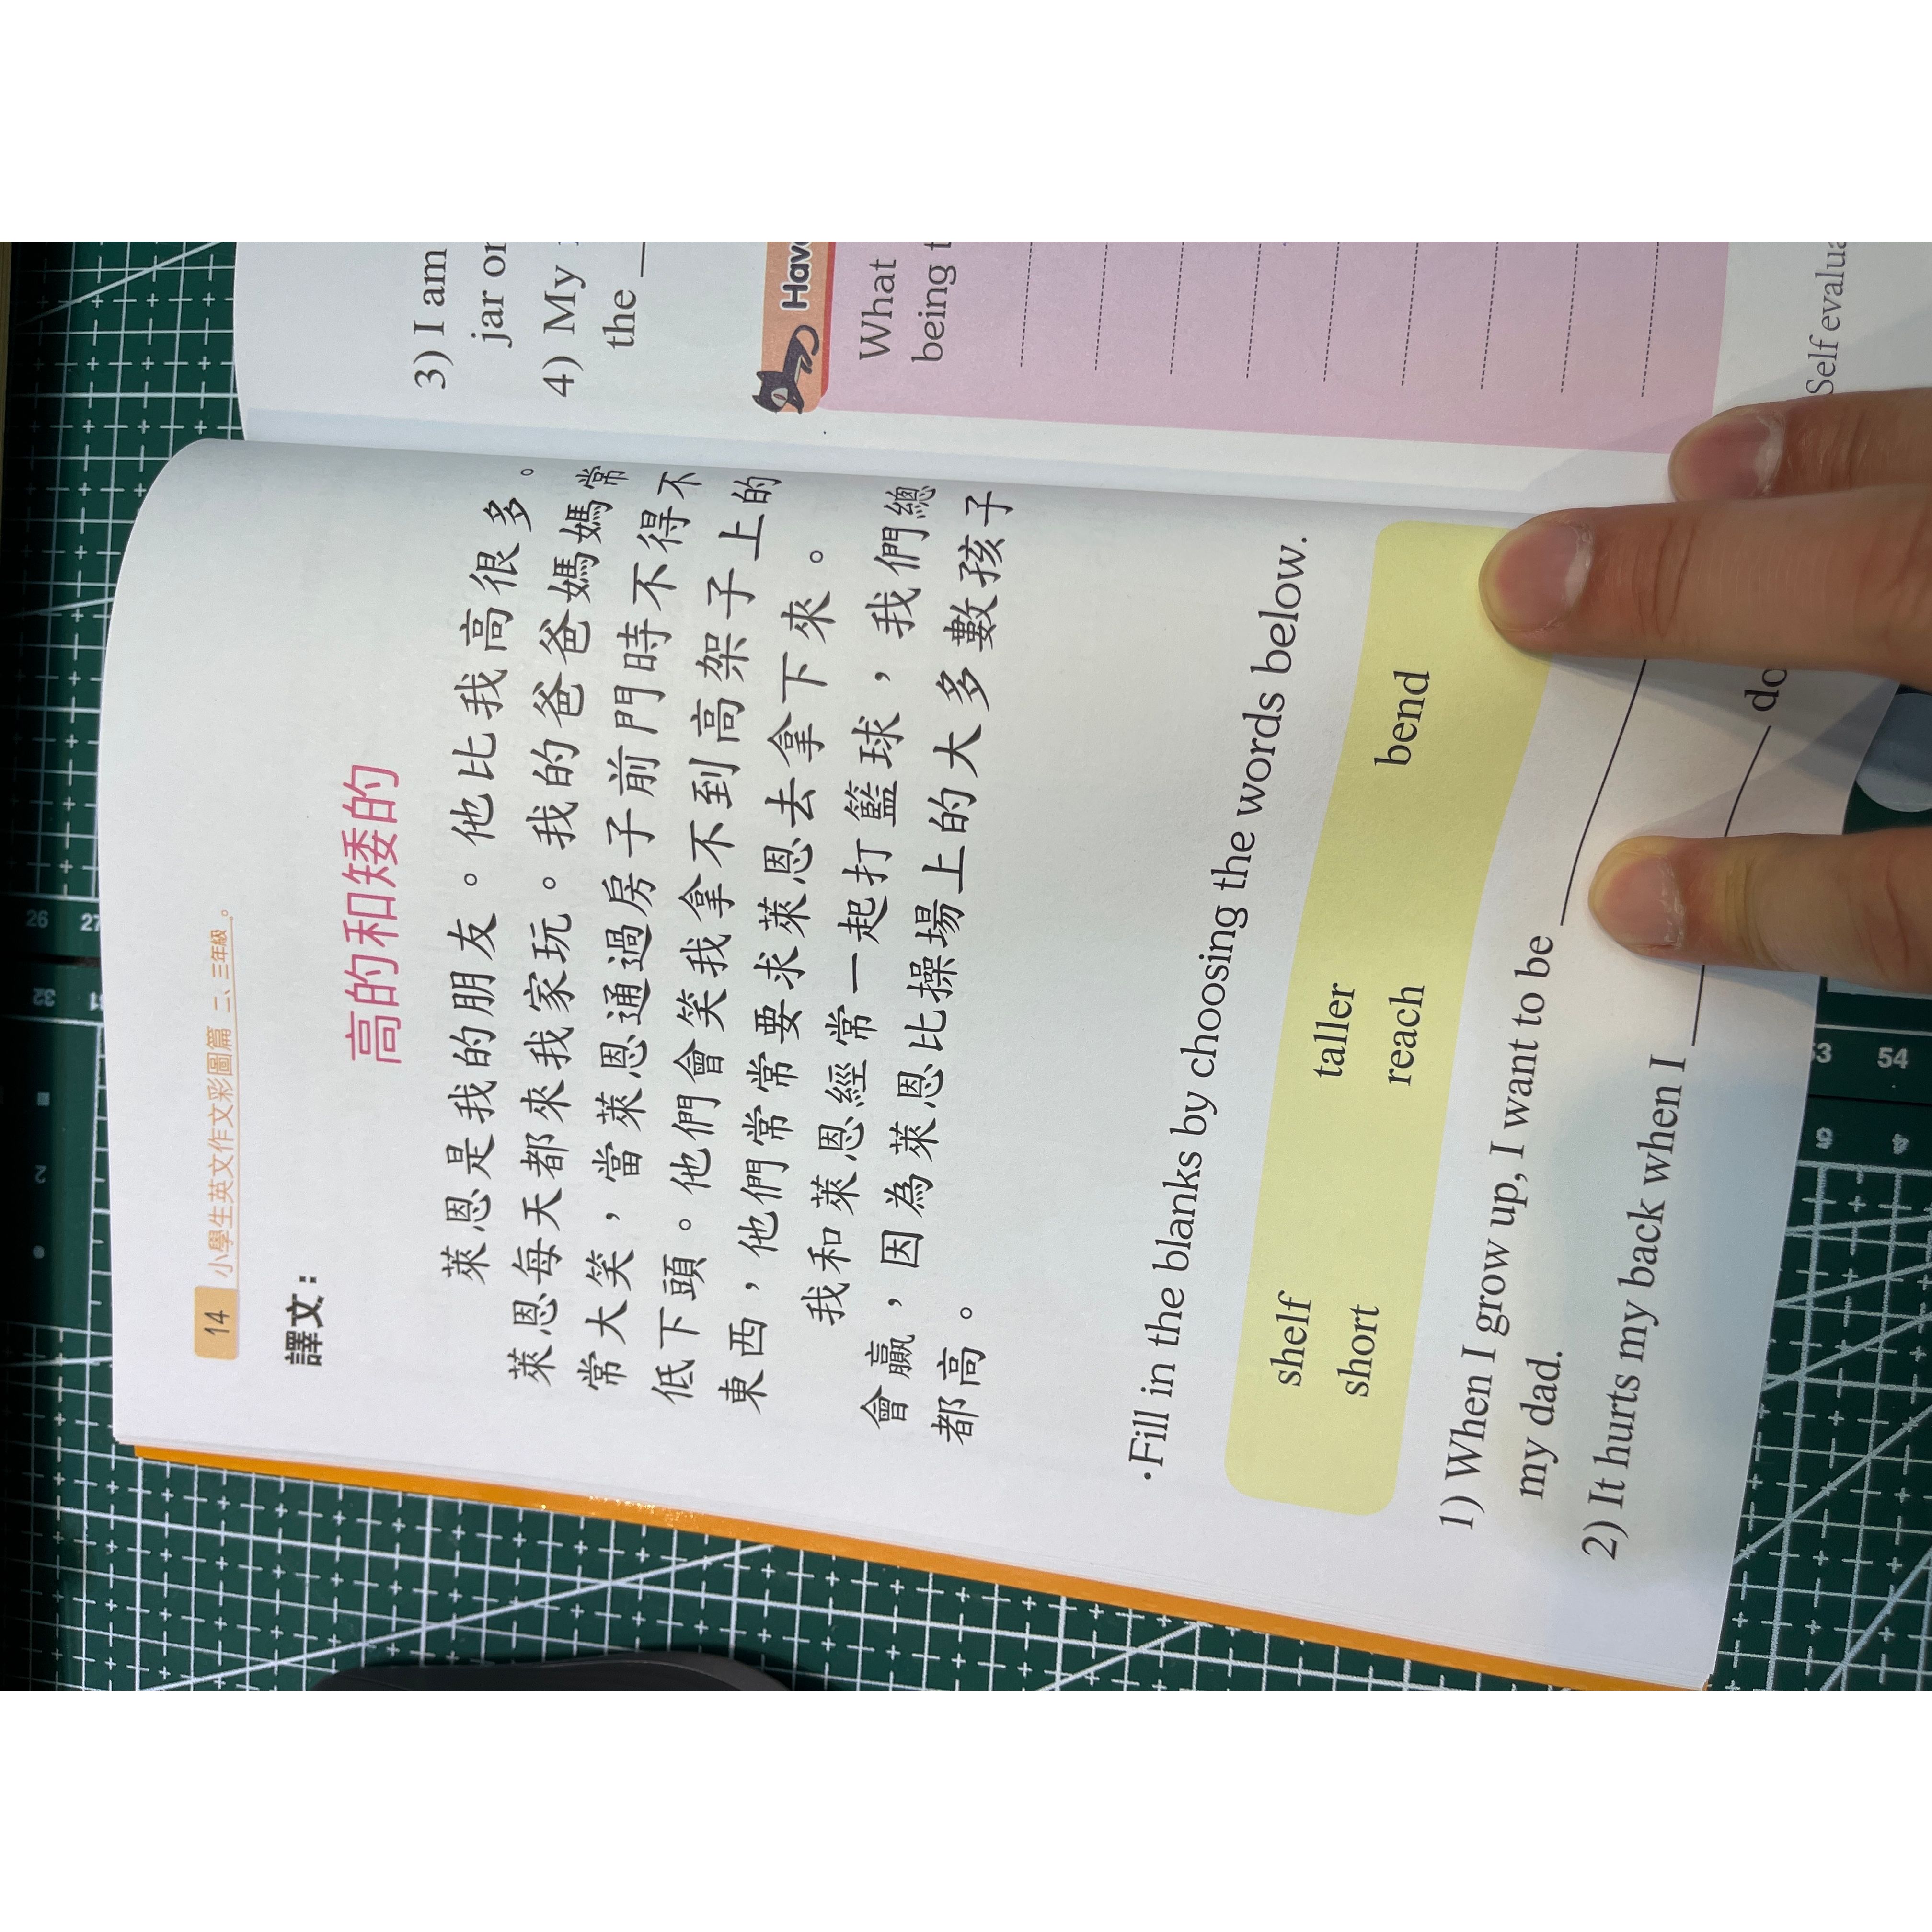 14 小學生英文作文彩圖篇 二、三年級。
譯文：
高的和矮的
萊恩是我的朋友。他比我高很多。
萊恩每天都來我家玩。我的爸爸媽媽常
常大笑，當萊恩通過房子前門時不得不
低下頭。他們會笑我拿不到高架子上的
東西，他們常常要求萊恩去拿下來。
我和萊恩經常一起打籃球，我們總
會贏，因為萊恩比操場上的大多數孩子
都高。
·Fill in the blanks by choosing the words below.
shelf taller
short reach bend
1) When I grow up, I want to be
my dad.
2) It hurts my back when I
3) I am
jar
4) My
the
What
being
Self
26 27
32 31
2
53 54
5 4